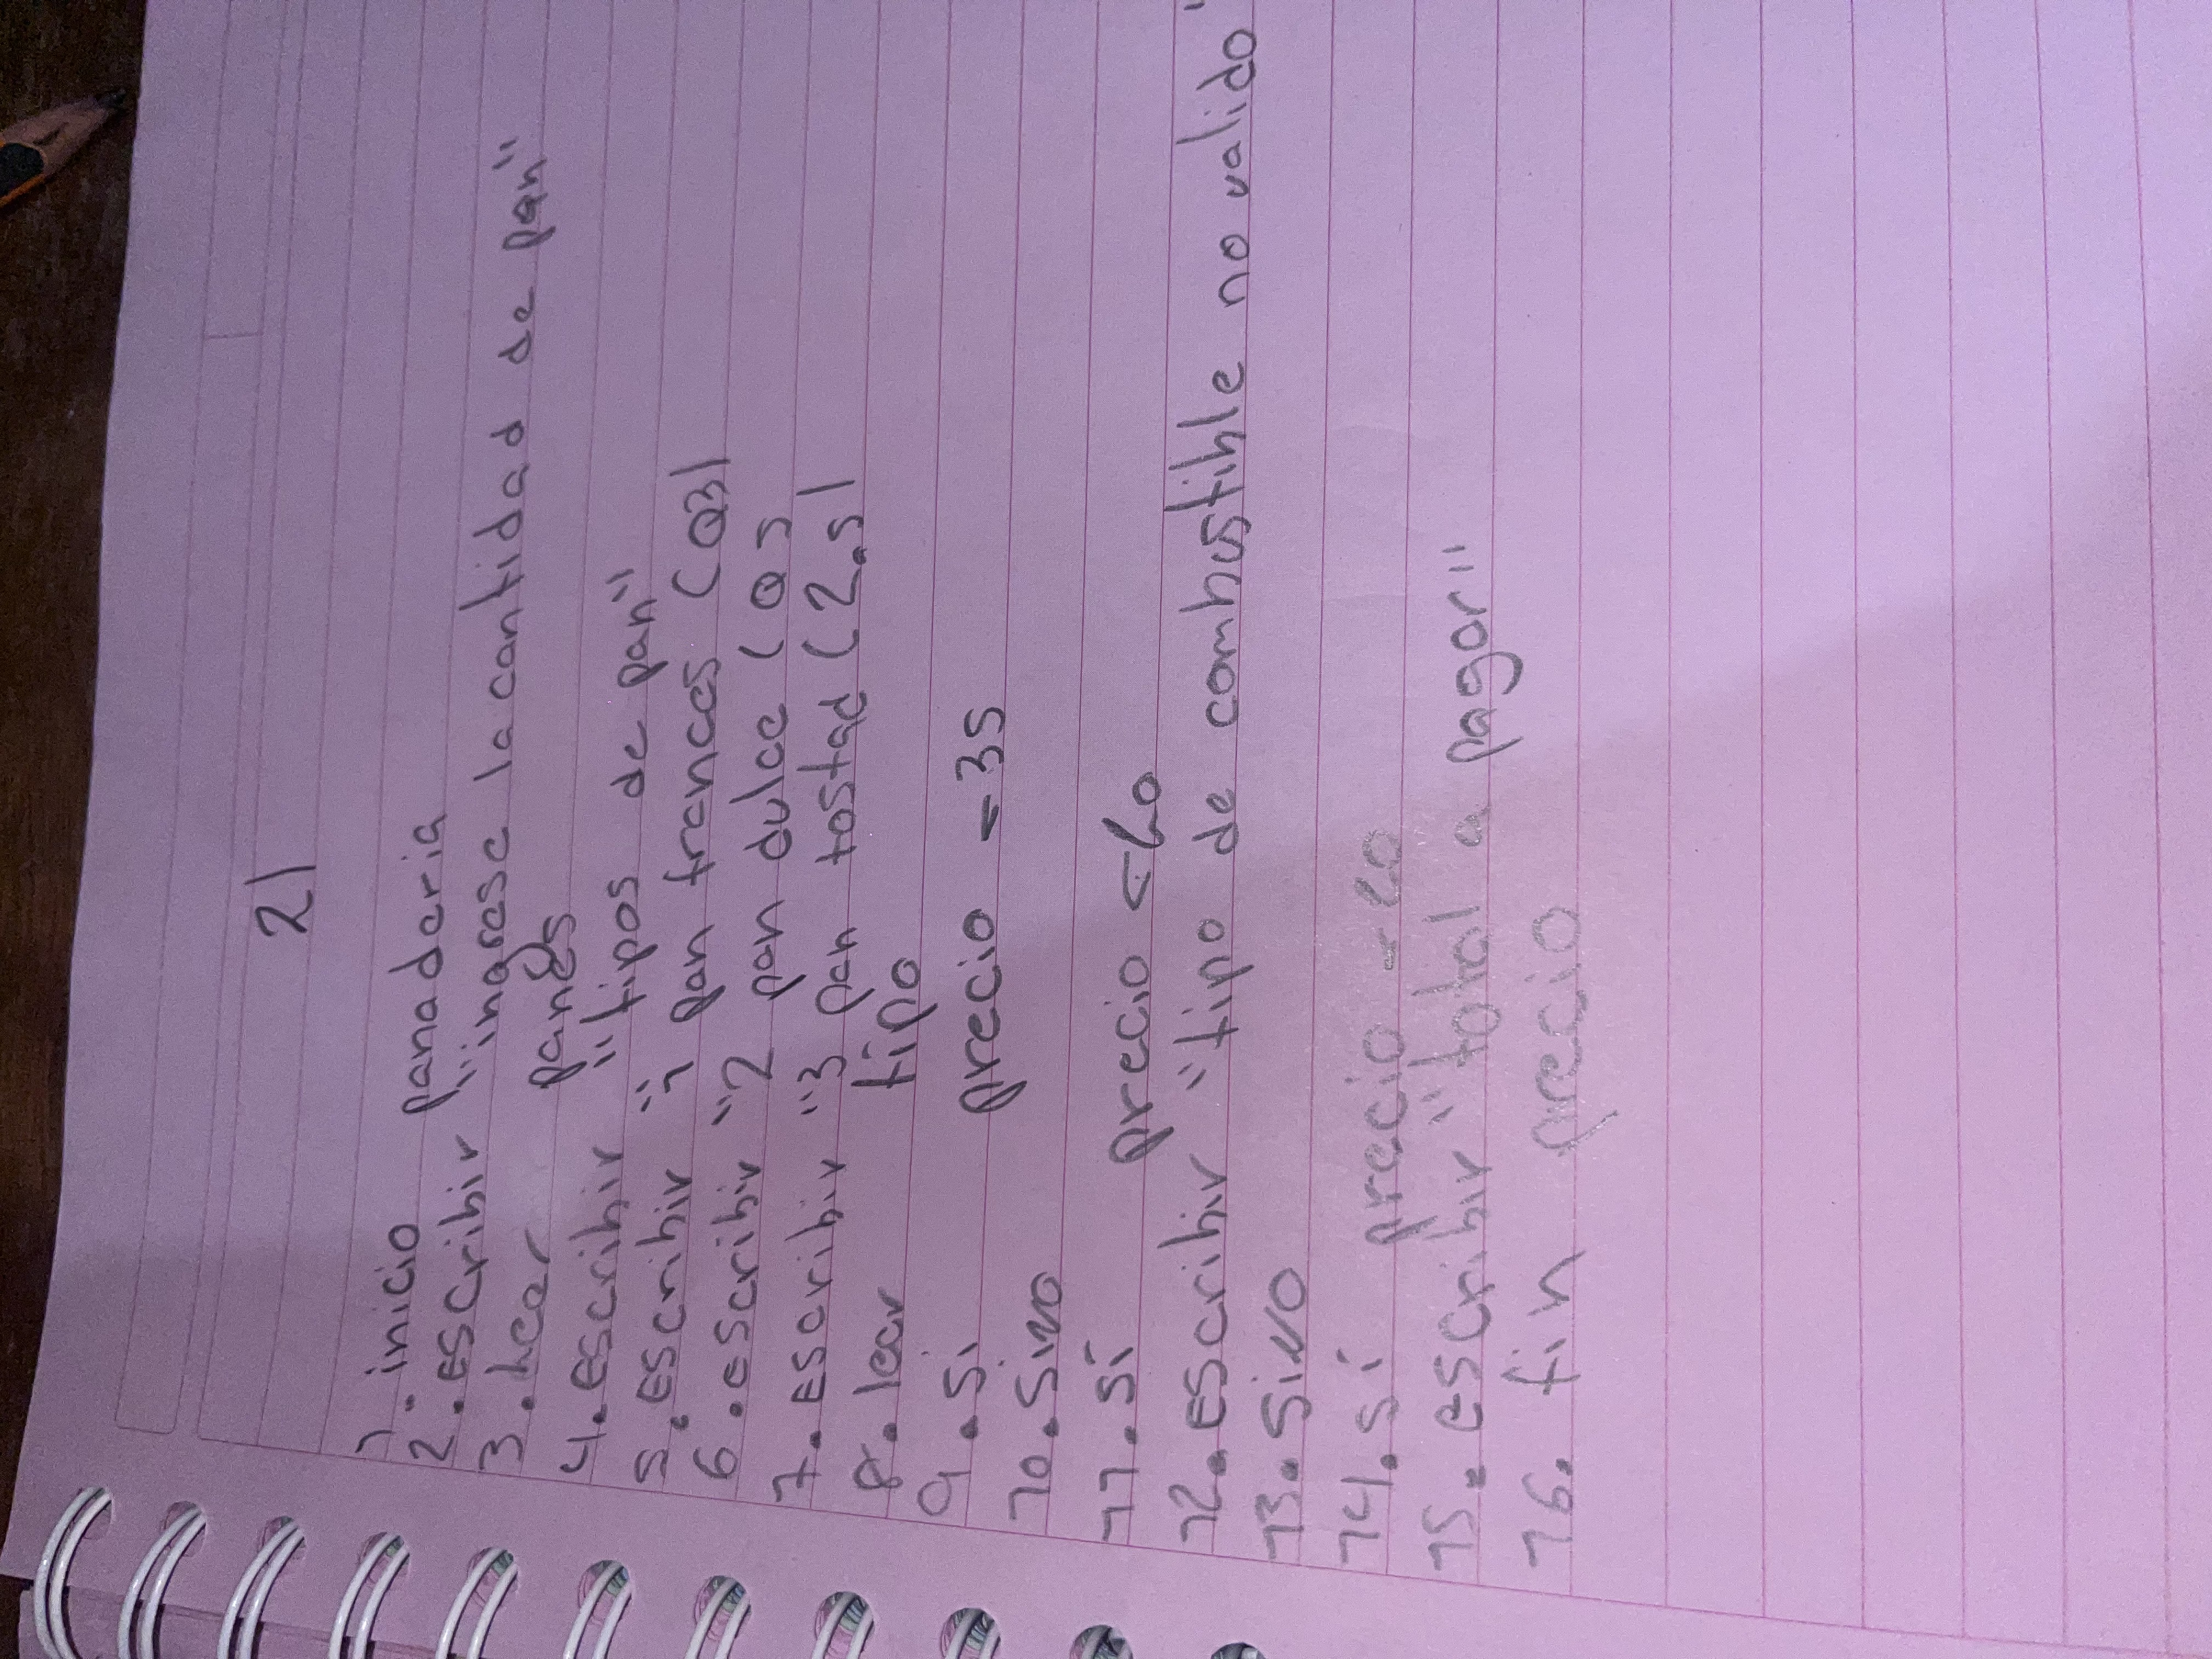 21
1. inicio panaderia
2. Escribir "ingrese la cantidad de pan"
3. leer panes
4. Escribir "tipos de pan"
5. Escribir "1 pan frances (Q3)
6. escribir "2 pan dulce (Q5
7. Escribir "3 pan tostad (2.5)
8. leer tipo
9. si precio - 35
10. SiNO
11. Si precio
12. Escribir "tipo de combustible no valido"
13. SiNO
14. si precio
15. escribir "total a pagar"
16. fin precio